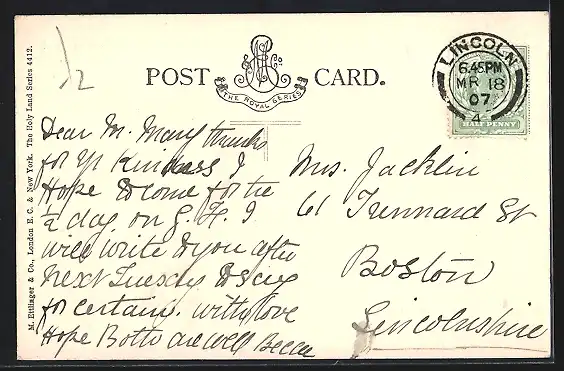 M. Ettlinger & Co., London E. C. & New York. The Holy Land Series 4412.
1/2
POST CARD.
THE ROYAL SERIES
LINCOLN
6.45PM
MR 18
07
4
HALF PENNY
Dear M. Mary thanks
for yr Kindness I
Hope to come for the
½ day on G. F. I
will write to you after
next Tuesday to say
for certain. with love
Hope Both are well
Mrs. Jacklin
61 Trennard St
Boston
Lincolnshire